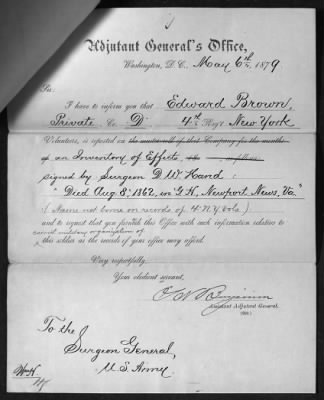 Adjutant General's Office,
Washington, D. C., May 6th, 1879
Sir:
I have to inform you that Edward Brown,
Private Co. D 4th Reg't New York
Volunteers, is reported on the muster-roll of that Company for the months
of an Inventory of Effects, as follows:
signed by Surgeon D. W. Hand:
"Died Aug 8, 1862, in G.H. Newport News, Va."
(Name not borne on records of 4 N.Y. Vols.)
and to request that you furnish this Office with such information relative to
correct military organization of
this soldier as the records of your office may afford.
Very respectfully,
Your obedient servant,
Assistant Adjutant General.
To the
Surgeon General,
U.S. Army.